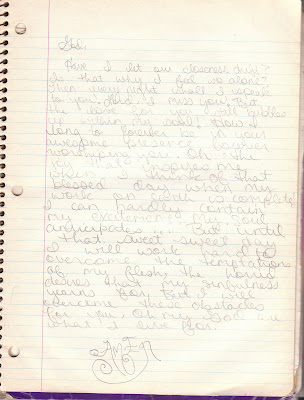 God,
Have I let our closeness drift?
Is that why I feel so alone?
Then every night shall I speak
to you, Lord. I miss you. But
the love for you still bubbles
up within my soul! How I
long to forever be in your
awesome presence forever
worshiping you. Oh the
joy that me
when I think of that
blessed day when my
work on earth is complete!
I can hardly contain
my excitement. My
anticipates... But until
that sweet sweet day
I will work hard to
overcome the temptations
of my flesh, the horrid
desires that my sinfulness
yearns for. Yet I will
overcome these obstacles
for you, Oh my God
what I live for.